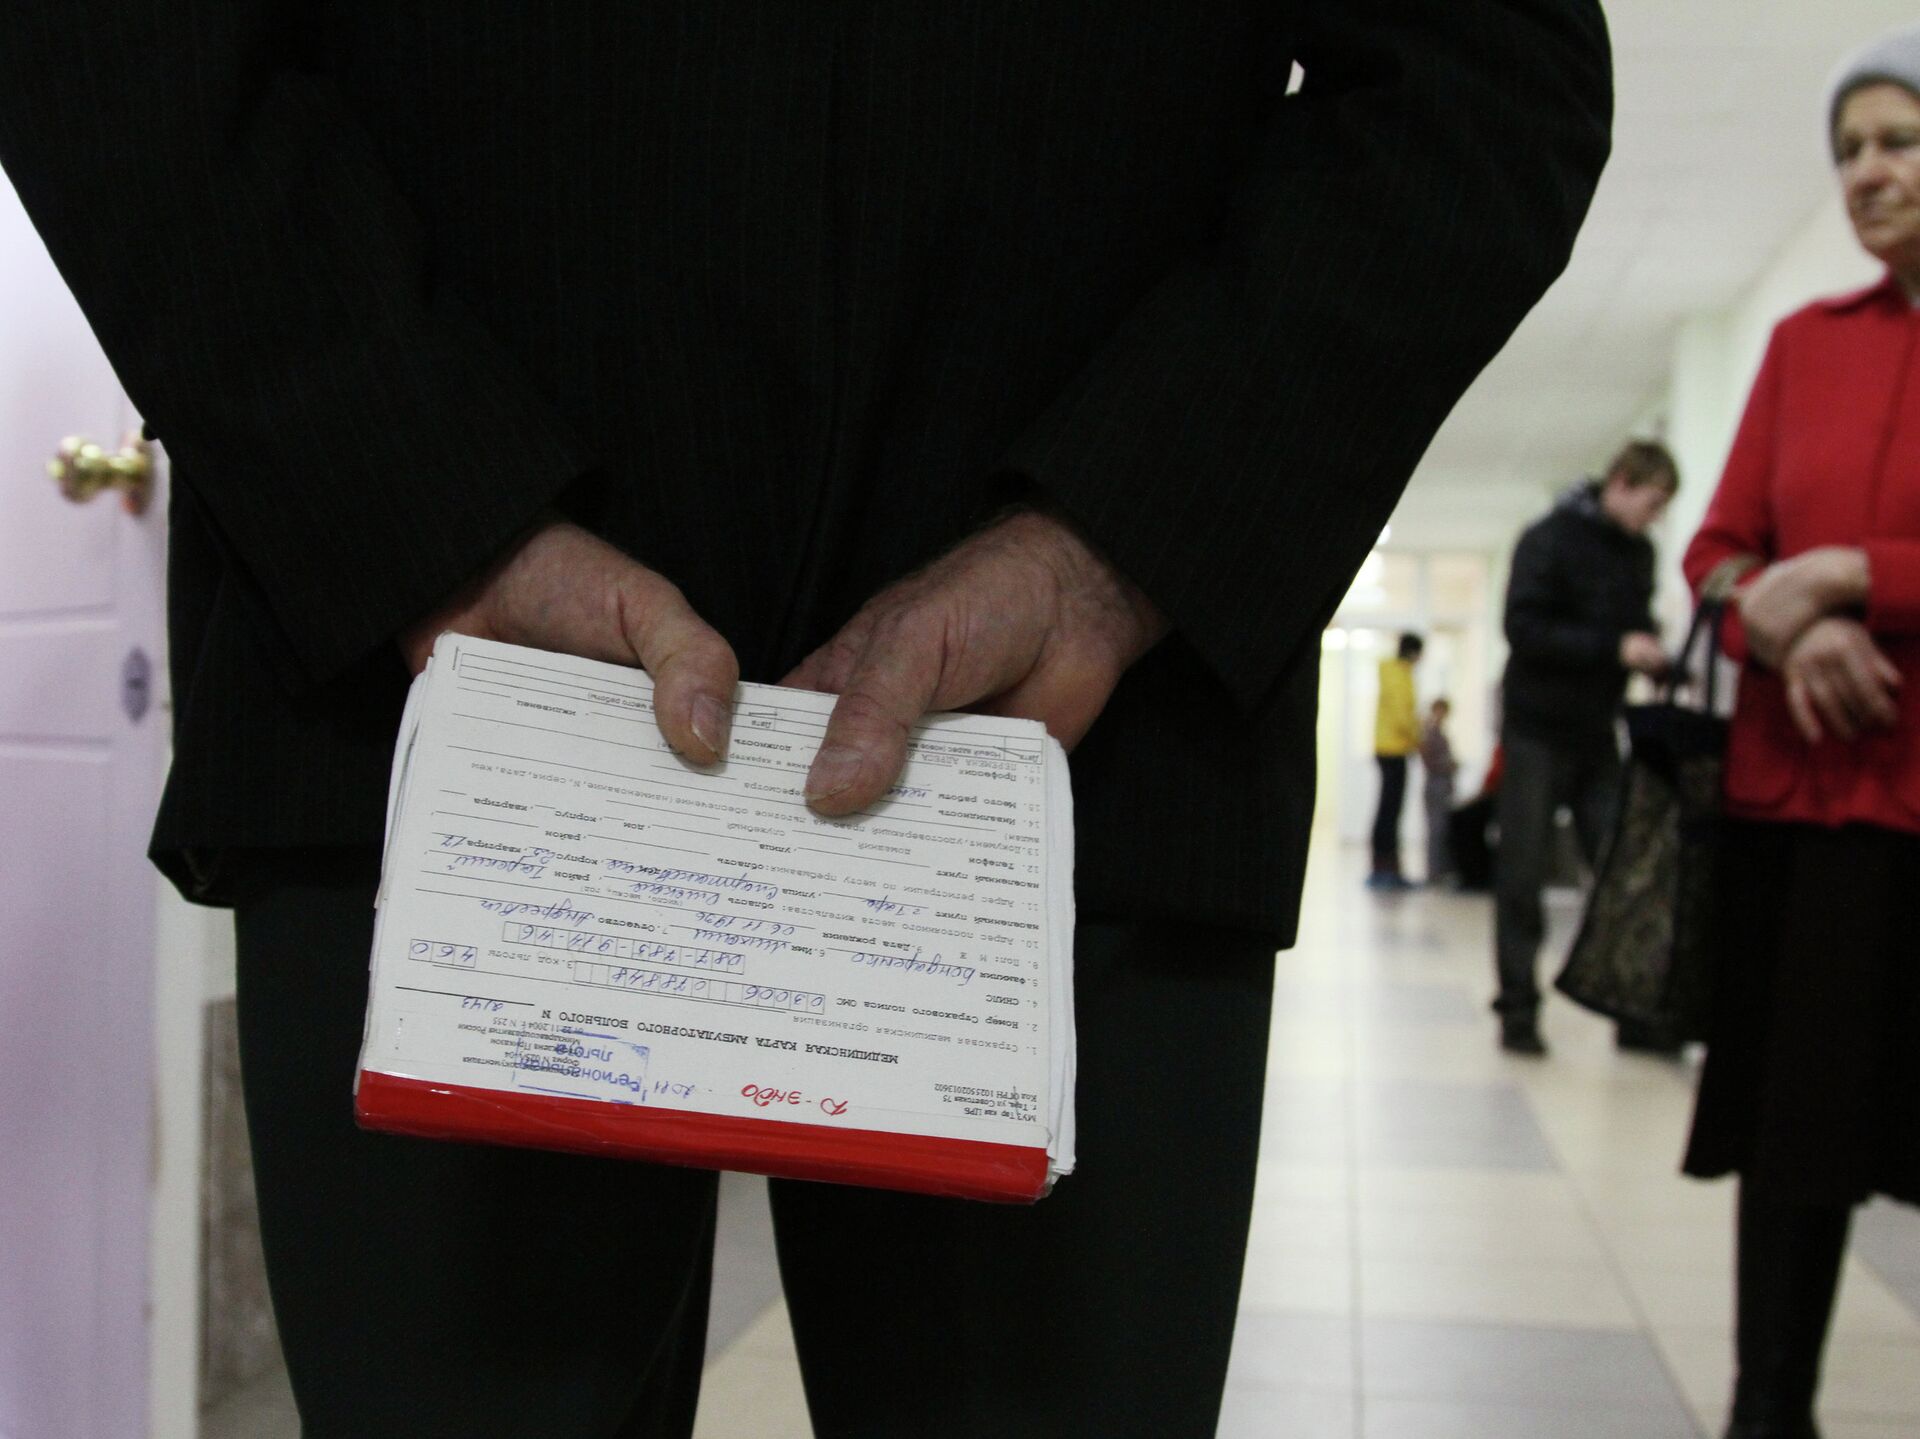 МУЗ Тар кая ЦРБ
г. Тара, ул Советская 75
Код ОГРН 1025502013602
Д-ЭНДО
2011
Форма N 025/у-04
Минздравсоцразвития России
от 22.11.2004 г. N 255
Региональная
льгота
МЕДИЦИНСКАЯ КАРТА АМБУЛАТОРНОГО БОЛЬНОГО N 2143
1. Страховая медицинская организация
2. Номер Страхового полиса ОМС 03006 078848 3. код льготы 460
4. СНИЛС 087-783-914-46
5. Фамилия Бондаренко 6. Имя Михаил 7. Отчество Андреевич
8. Пол: М Ж 9. Дата рождения 06.11.1936 (число, месяц, год)
10. Адрес постоянного места жительства: область Омская, район Тарский
населенный пункт г. Тара, улица Спартаковская, корпус, квартира 17
11. Адрес регистрации по месту пребывания: область, район
населенный пункт, улица, дом, корпус, квартира
12. Телефон домашний служебный
13. Документ, удостоверяющий право на льготное обеспечение (наименование, N, серия, дата, кем
выдан)
14. Инвалидность
15. Место работы
16. Профессия, должность, иждивенец
17. ПЕРЕМЕНА АДРЕСА И
Дата Новый адрес (новое ме Дата ое место работы)